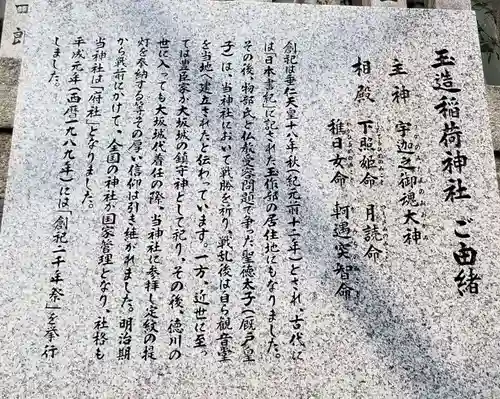 玉造稲荷神社 ご由緒
主神 宇迦之御魂大神
相殿 下照姫命 月読命
稚日女命 軻遇突智命
創祀は垂仁天皇十八年秋(紀元前十二年)とされ、古代に
は日本書紀に記された玉作部の居住地にもなりました。
その後、物部氏と仏教受容問題で争った聖徳太子(厩戸皇
子)は、当神社において戦勝を祈り、戦乱後は自ら観音堂
を当地に建立されたと伝わっています。一方、近世に至っ
ては豊臣家が大坂城の鎮守神として祀り、その後、徳川の
世に入っても大坂城代着任の際、当神社に参拝し定紋の提
灯を奉納する等その厚い信仰は引き継がれました。明治期
から戦前にかけて、全国の神社は国家管理となり、社格も
当神社は「府社」となりました。
平成元年(西暦一九八九年)には「創祀二千年祭」を挙行
しました。
郎